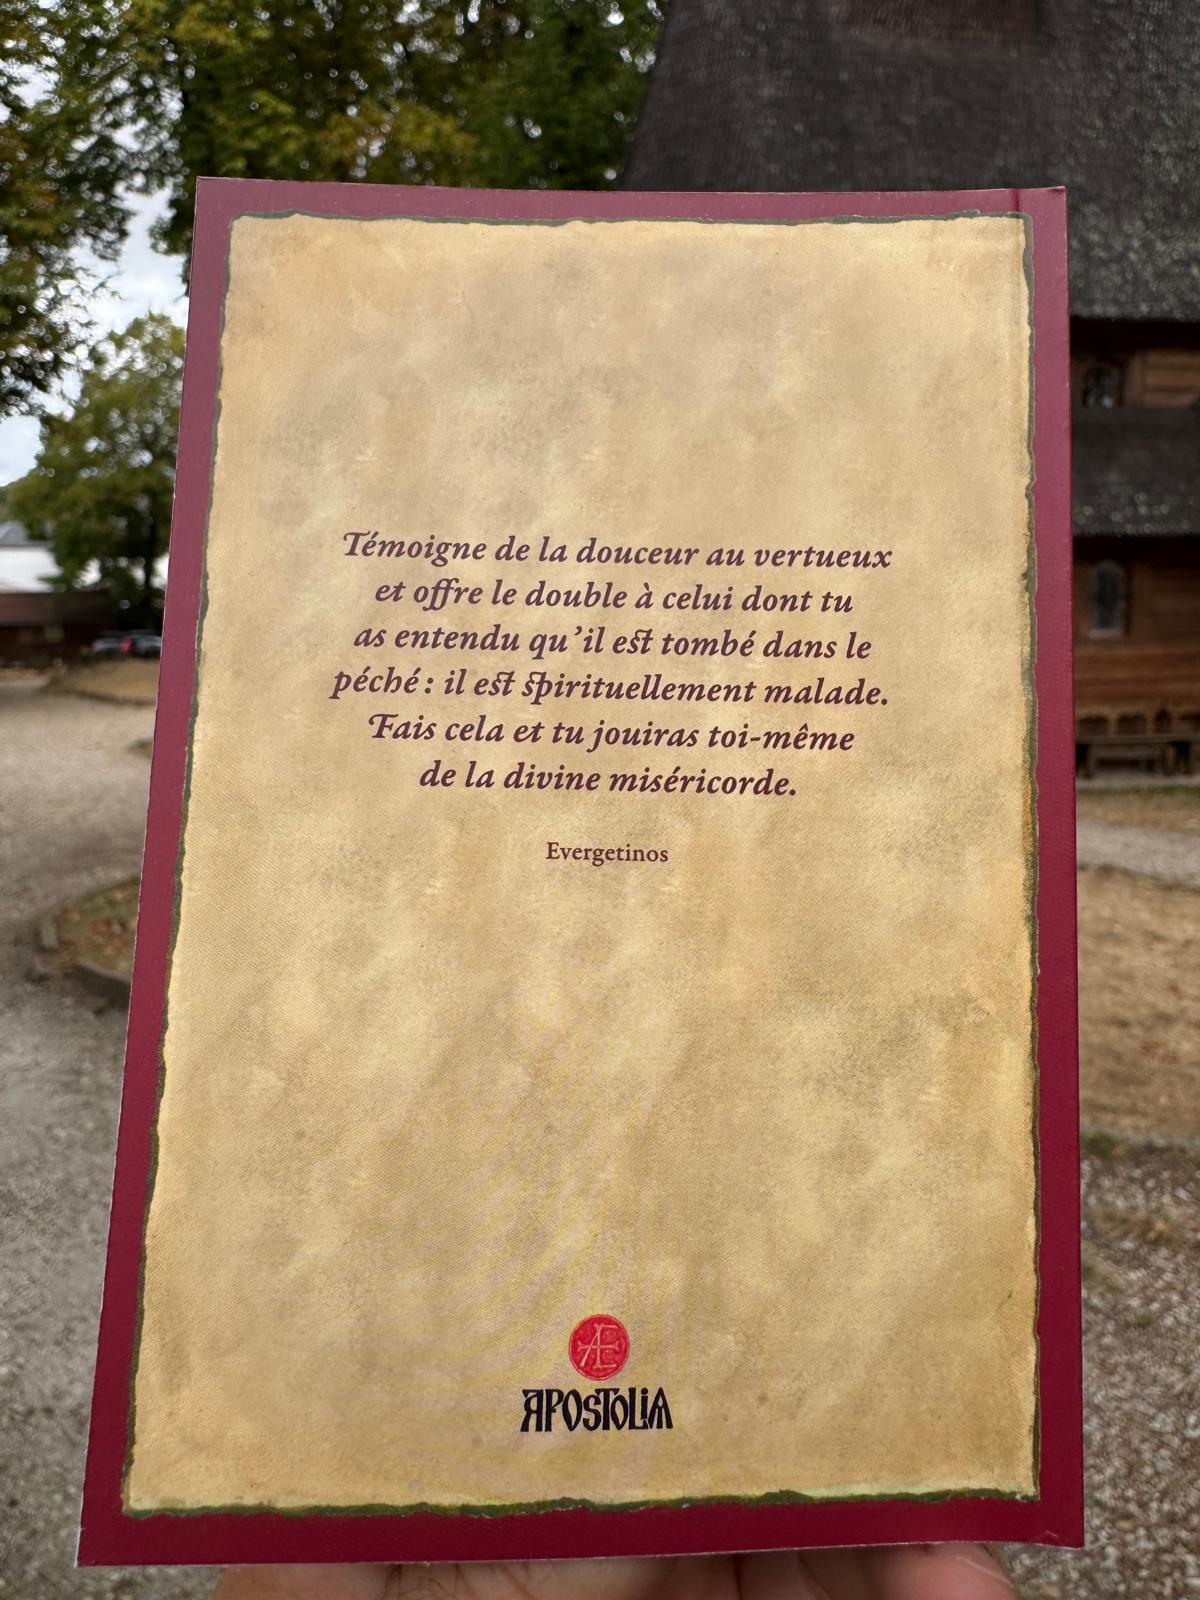 Témoigne de la douceur au vertueux
et offre le double à celui dont tu
as entendu qu’il est tombé dans le
péché : il est spirituellement malade.
Fais cela et tu jouiras toi-même
de la divine miséricorde.
Evergetinos
Æ
APOSTOLIA